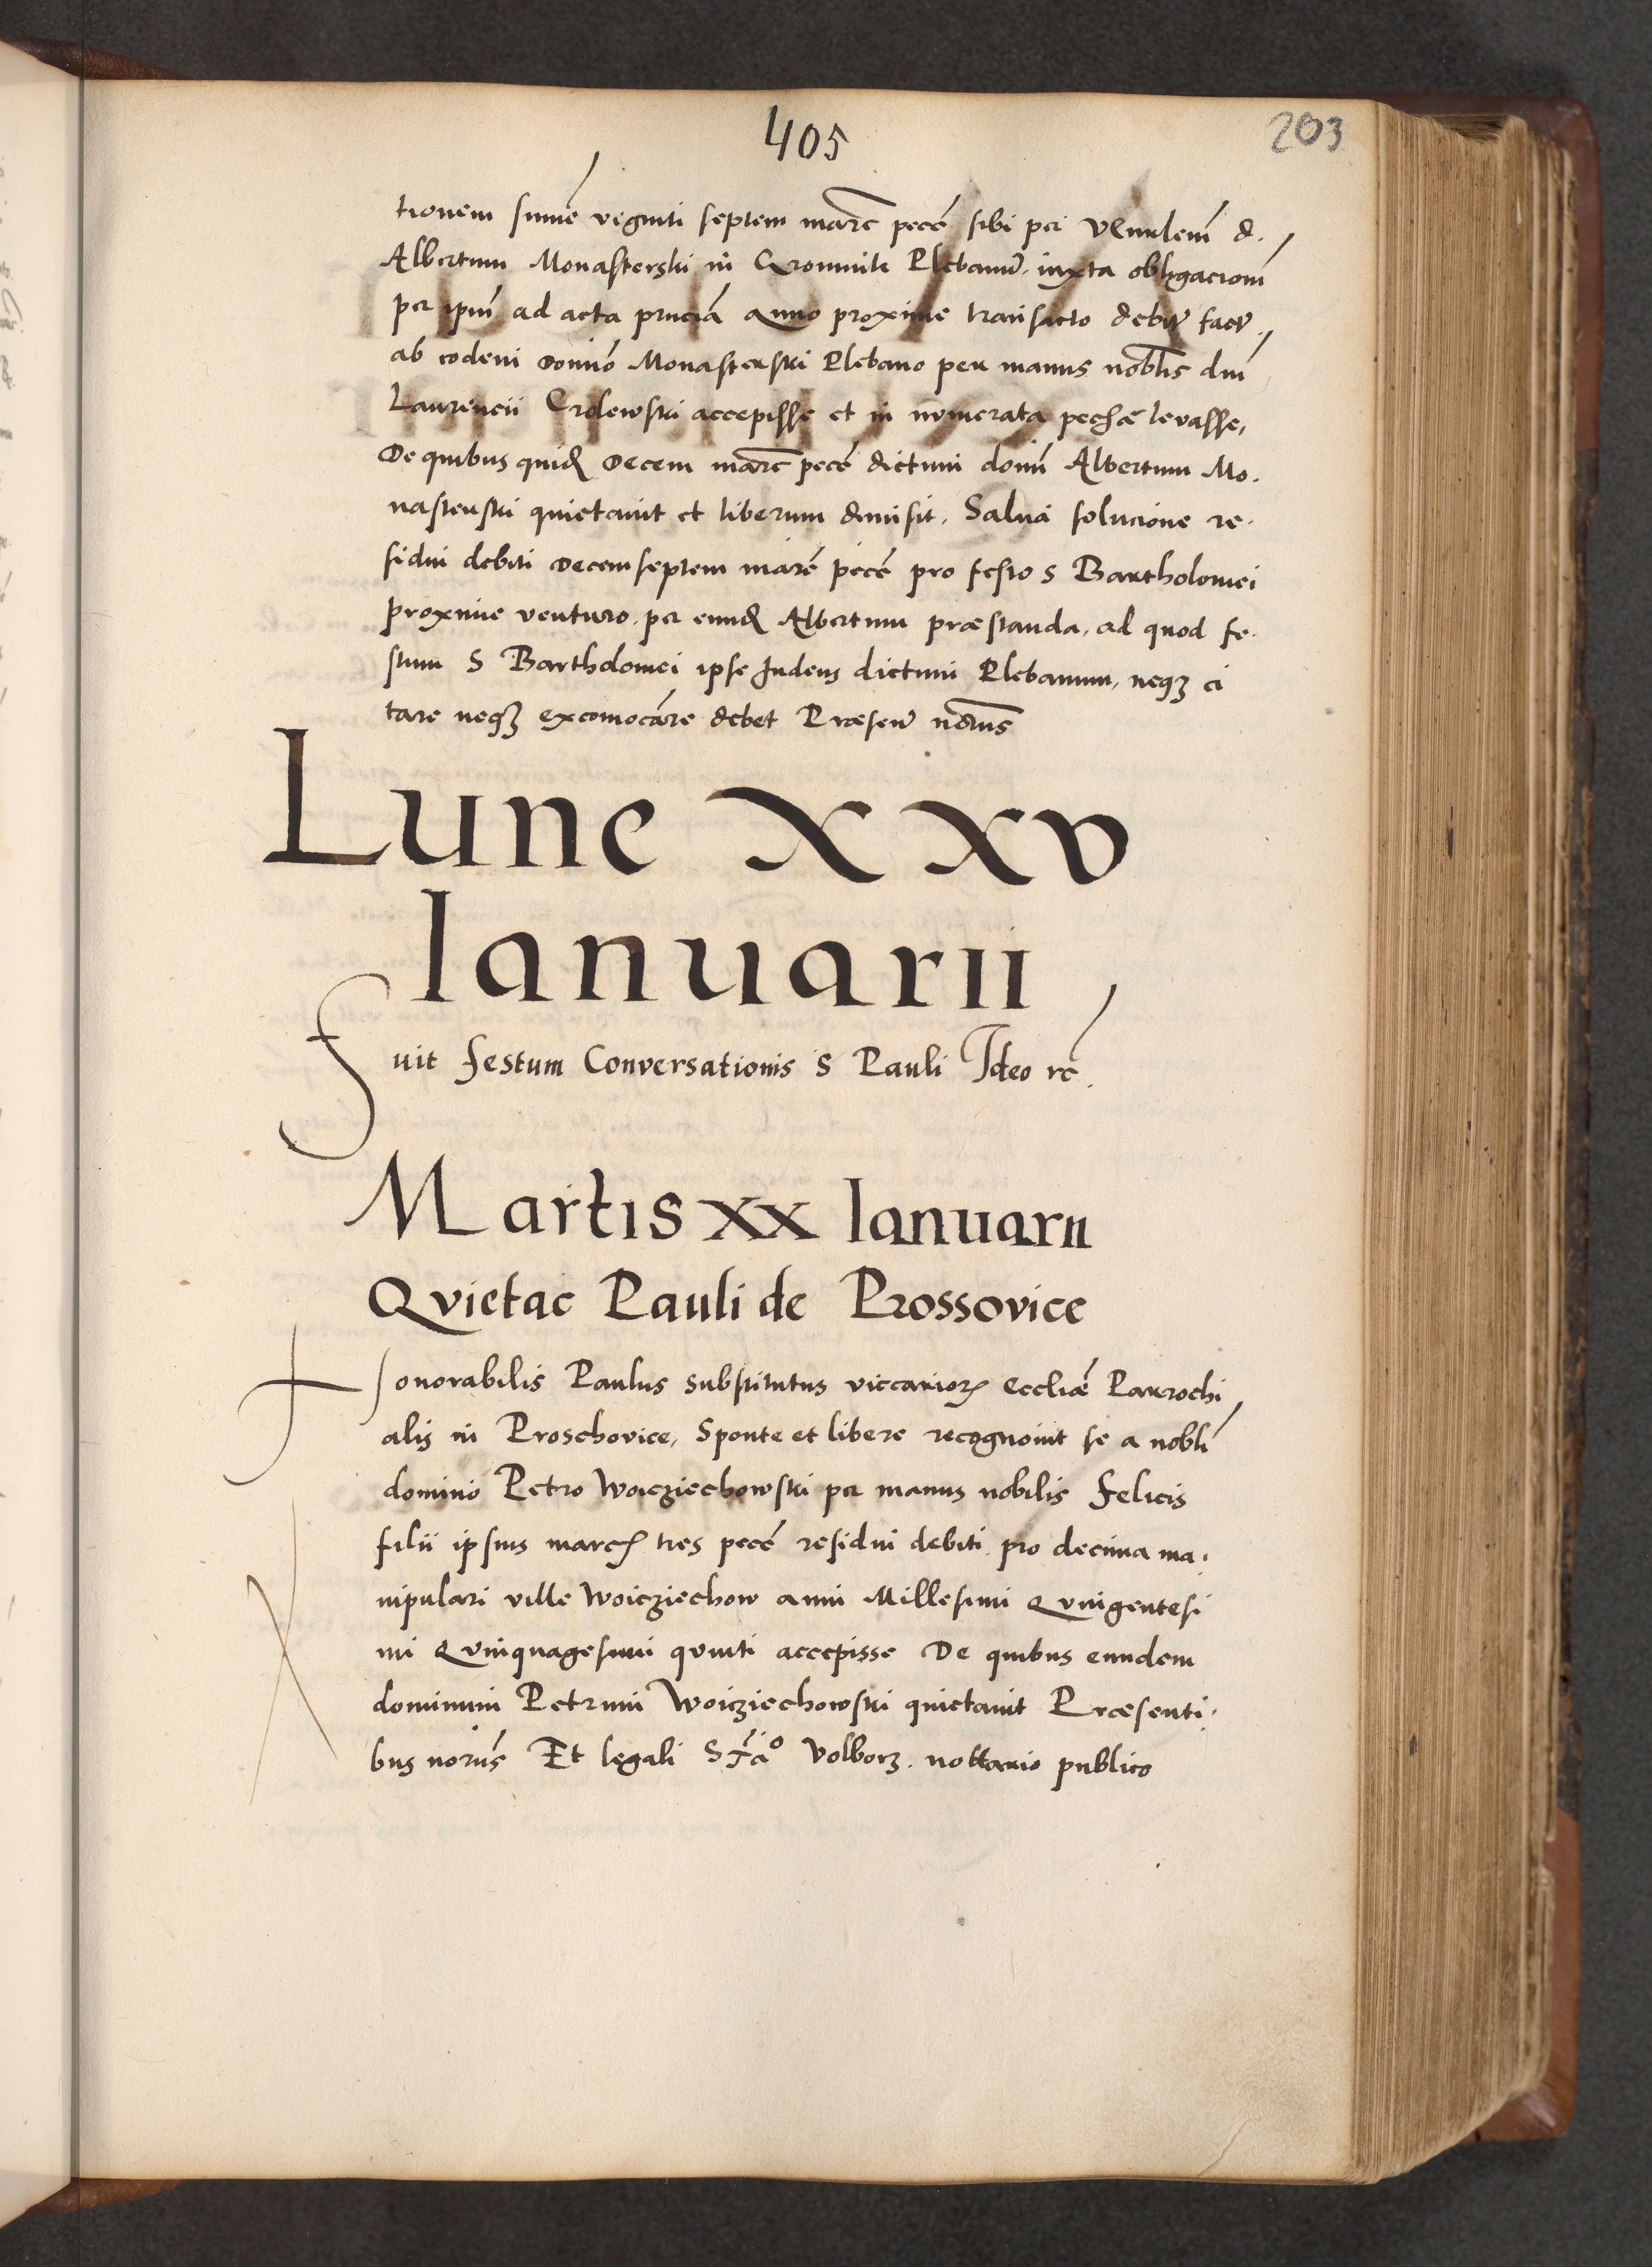 405
203
tionem sume veginti septem marc pecē sibi per Venulem d.
Albertum Monasterski in Cromnik Plebanum. iuxta obligacionem
per ipm̄ ad acta pncia anno proxime transacto debite fact.
ab eodem domino Monasterski Plebano per manus nobilis dni
Laurencii Crolewski accepisse et in numerata pechā levasse,
De quibus quid decem marc pecē dictum domin Albertum Mo.
nasterski quietavit et liberum dimisit. Salva solucione re.
sidui debiti decemseptem marc pecē pro festo S Bartholomei
proxime venturo. per eund Albertum præstanda. ad quod fe.
stum S Bartholomei ipse Judeus dictum Plebanum, neqz ci
tare neqz excomocare debet Præsen notarius
Lune XXV
Ianuarii
Fuit Festum Conversationis S Pauli Ideo rc.
Martis XX Ianuarii
Qvietac Pauli de Prossovice
Honorabilis Paulus substitutus viccarior ecclīæ Parrochi
alis in Proschovice, Sponte et libere recognovit se a nobli
domino Petro Woicziechowski per manus nobilis Felicis
filii ipsius marc tres pecē residui debiti pro decima ma.
nipulari ville Woicziechow anni Millesimi Qvingentesi
mi Qvinquagesimi qvinti accepisse De quibus eundem
dominum Petrum Woicziechowski quietavit Præsenti.
bus Et legali Volborz. nottario publico